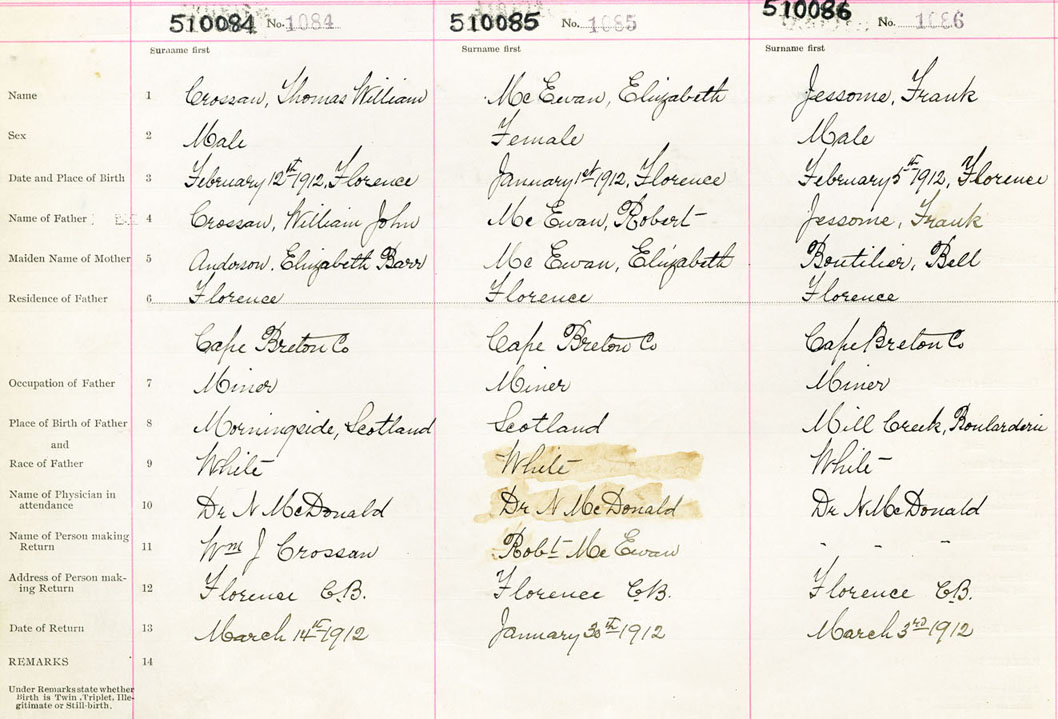 510084 No. 1084 510085 No. 1085 510086 No. 1086
Surname first Surname first Surname first
Name 1 Crossan, Thomas William McEwan, Elizabeth Jessome, Frank
Sex 2 Male Female Male
Date and Place of Birth 3 February 12th 1912, Florence January 1st 1912, Florence February 5th 1912, Florence
Name of Father 4 Crossan, William John McEwan, Robert Jessome, Frank
Maiden Name of Mother 5 Anderson, Elizabeth Barr McEwan, Elizabeth Boutilier, Bell
Residence of Father 6 Florence Florence Florence
Cape Breton Co Cape Breton Co Cape Breton Co
Occupation of Father 7 Miner Miner Miner
Place of Birth of Father 8 Morningside, Scotland Scotland Mill Creek, Boularderie
and
Race of Father 9 White White White
Name of Physician in
attendance 10 Dr N McDonald Dr N McDonald Dr N McDonald
Name of Person making
Return 11 Wm J Crossan Robt McEwan " " "
Address of Person mak-
ing Return 12 Florence C.B. Florence C.B. Florence C.B.
Date of Return 13 March 14th 1912 January 30th 1912 March 3rd 1912
REMARKS 14
Under Remarks state whether
Birth is Twin, Triplet, Ille-
gitimate or Still-birth.